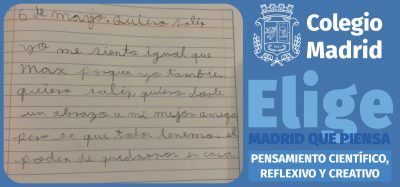 6 de mayo. Quiero salir
yo me siento igual que
Max porque yo también
quiero salir, quiero darle
un abrazo a mi mejor amiga
pero se que todos tenemos el
poder de quedarnos en casa.
Colegio
Madrid
Elige
MADRID QUE PIENSA
PENSAMIENTO CIENTÍFICO,
REFLEXIVO Y CREATIVO